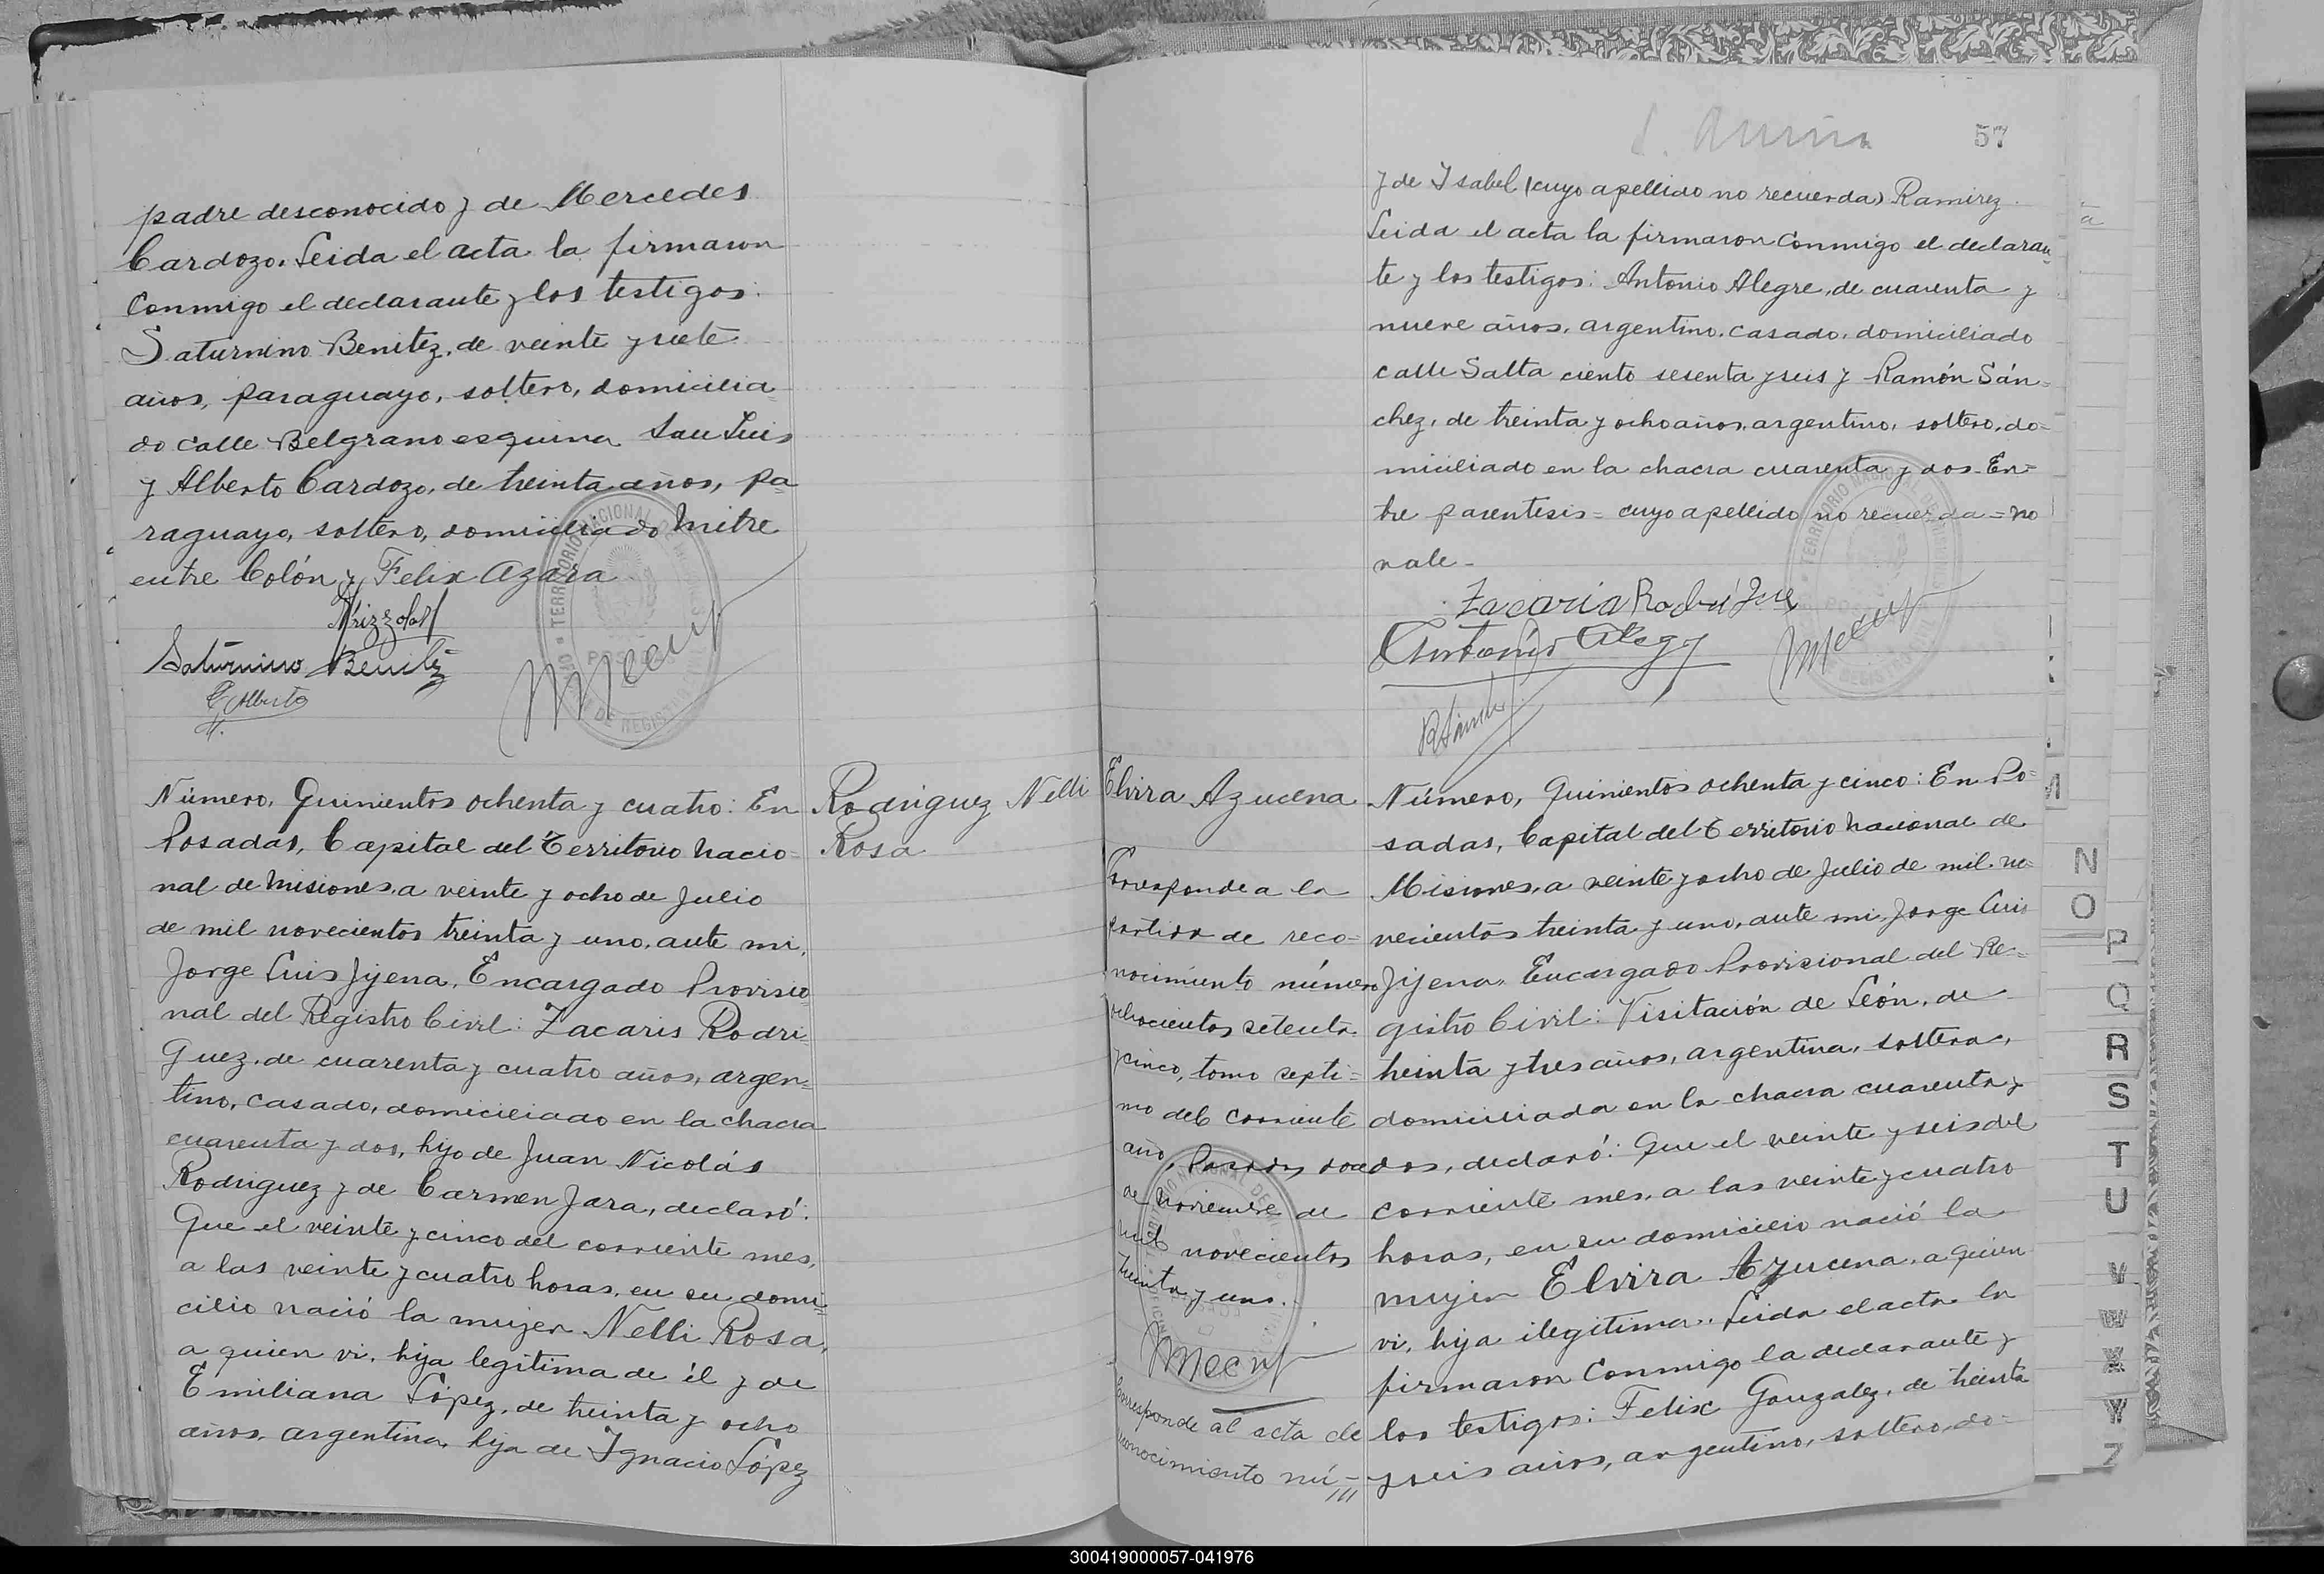 padre desconocido y de Mercedes
Cardozo. Leida el acta la firmaron
Conmigo el declarante y los testigos:
Saturnino Benitez, de veinte y siete
años, paraguayo, soltero, domicilia-
do calle Belgrano esquina San Luis
y Alberto Cardozo, de treinta años, pa-
raguayo, soltero, domiciliado Mitre
entre Colón y Felix Azara
Saturnino Benitez
C. Alberto
Número, Quinientos ochenta y cuatro: En
Posadas, Capital del Territorio Nacio-
nal de Misiones, a veinte y ocho de Julio
de mil novecientos treinta y uno, ante mi,
Jorge Luis Jijena, Encargado Provisio-
nal del Registro Civil: Zacaris Rodri-
guez, de cuarenta y cuatro años, argen-
tino, casado, domiciliado en la chacra
cuarenta y dos, hijo de Juan Nicolás
Rodriguez y de Carmen Jara, declaró:
Que el veinte y cinco del corriente mes,
a las veinte y cuatro horas, en su domi-
cilio nació la mujer Nelli Rosa,
a quien vi, hija legitima de él y de
Emiliana López, de treinta y ocho
años, argentina, hija de Ignacio López
Rodriguez Nelli
Rosa
57
y de Isabel (cuyo apellido no recuerda) Ramirez.
Leida el acta la firmaron Conmigo el declaran-
te y los testigos: Antonio Alegre, de cuarenta y
nueve años, argentino, casado, domiciliado
calle Salta ciento sesenta y seis y Ramón Sán-
chez, de treinta y ocho años, argentino, soltero, do-
miciliado en la chacra cuarenta y dos. En-
tre parentesis = cuyo apellido no recuerda = no
vale -
Zacaria Rodriguez
Antonio Alegre
R Sanchez
Elvira Azucena
Corresponde a la
partida de reco-
nocimiento número
ochocientos setenta
y cinco, tomo septi-
mo del corriente
año, Posadas doce
de Noviembre de
mil novecientos
treinta y uno.
Corresponde al acta de
reconocimiento nú-
Número, Quinientos ochenta y cinco: En Po-
sadas, Capital del Territorio Nacional de
Misiones, a veinte y ocho de Julio de mil no-
vecientos treinta y uno, ante mi, Jorge Luis
Jijena, Encargado Provisional del Re-
gistro Civil: Visitación de León, de
treinta y tres años, argentina, soltera,
domiciliada en la chacra cuarenta y
dos, declaró: Que el veinte y seis del
corriente mes, a las veinte y cuatro
horas, en su domicilio nació la
mujer Elvira Azucena, a quien
vi, hija ilegitima. Leida el acta la
firmaron Conmigo la declarante y
los testigos: Felix Gonzalez, de treinta
y seis años, argentino, soltero, do-
N
O
P
Q
R
S
T
U
V
W
X
Y
Z
300419000057-041976